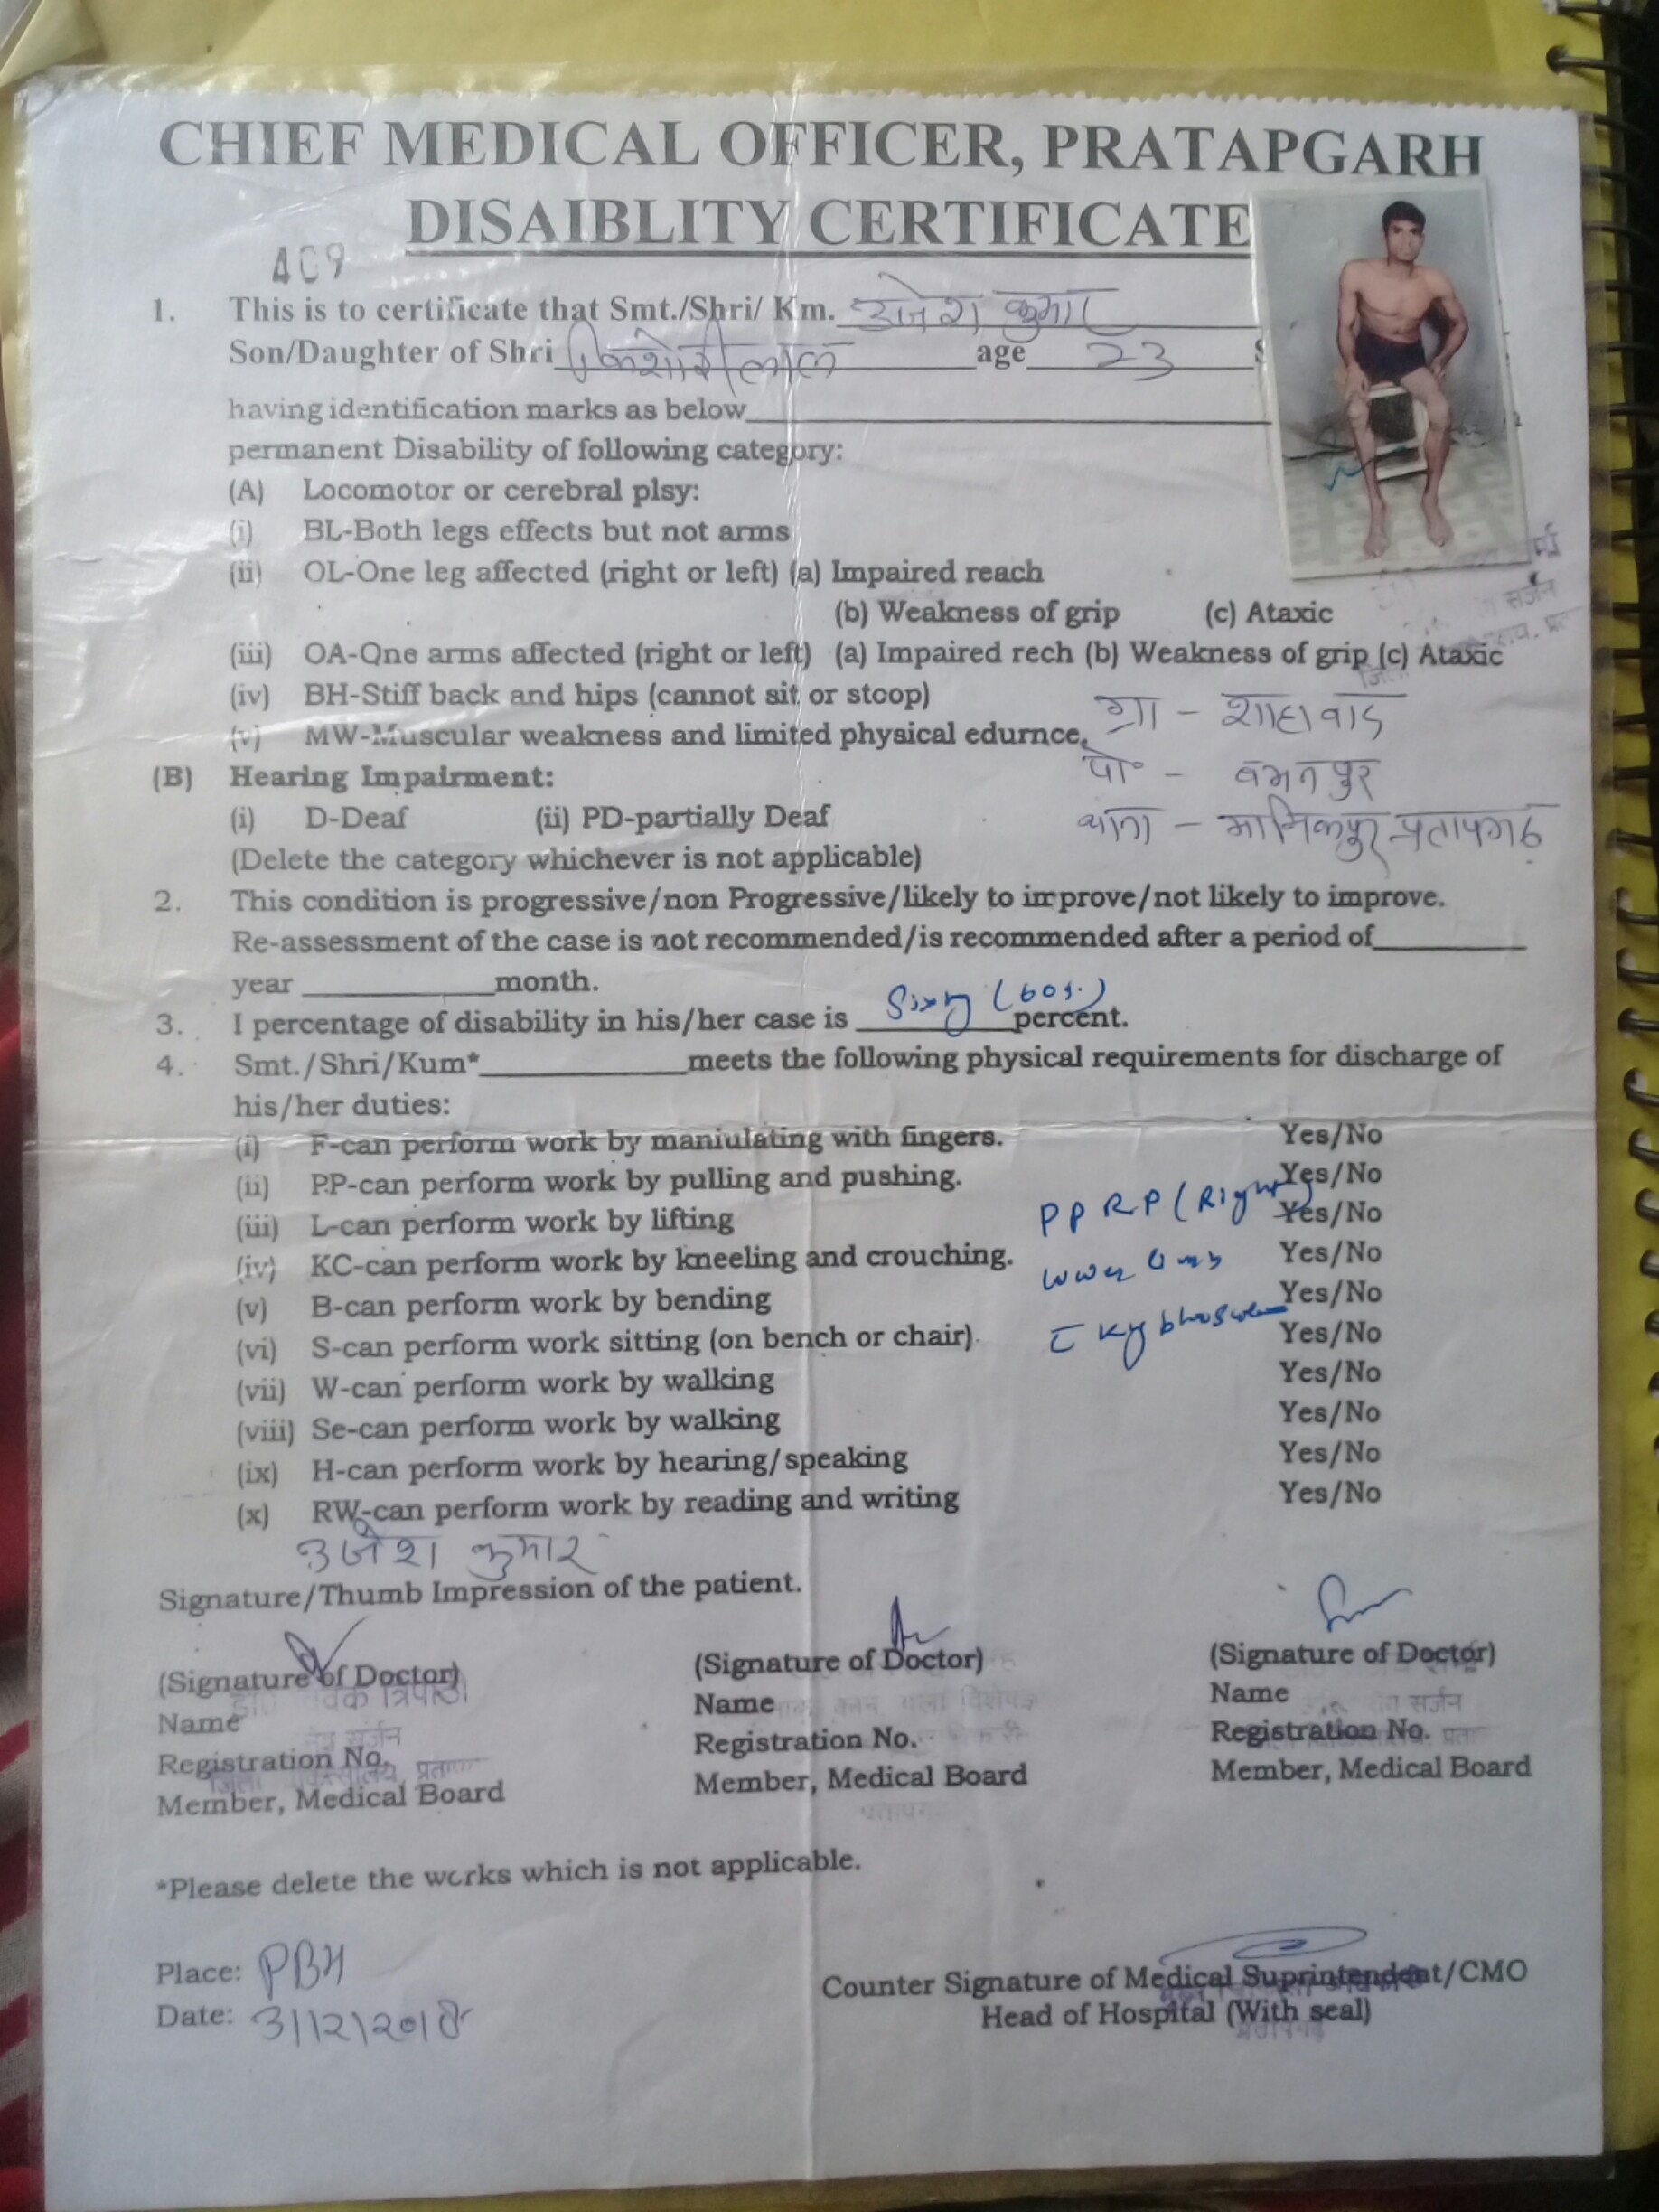 CHIEF MEDICAL OFFICER, PRATAPGARH
DISAIBLITY CERTIFICATE
409
1. This is to certificate that Smt./Shri/ Km. उजेश कुमार
Son/Daughter of Shri किशोरी लाल age 23 S
having identification marks as below
permanent Disability of following category:
(A) Locomotor or cerebral plsy:
(i) BL-Both legs effects but not arms
(ii) OL-One leg affected (right or left) (a) Impaired reach
(b) Weakness of grip (c) Ataxic
सर्जन
(iii) OA-One arms affected (right or left) (a) Impaired rech (b) Weakness of grip (c) Ataxic
(iv) BH-Stiff back and hips (cannot sit or stoop)
ग्रा - शाहावाद
(v) MW-Muscular weakness and limited physical edurnce.
(B) Hearing Impairment:
पो० - वमनपुर
(i) D-Deaf (ii) PD-partially Deaf
थाना - मानिकपुर प्रतापगढ़
(Delete the category whichever is not applicable)
2. This condition is progressive/non Progressive/likely to improve/not likely to improve.
Re-assessment of the case is not recommended/is recommended after a period of
year month.
3. I percentage of disability in his/her case is Sixty (60%) percent.
4. Smt./Shri/Kum* meets the following physical requirements for discharge of
his/her duties:
(i) F-can perform work by maniulating with fingers. Yes/No
(ii) PP-can perform work by pulling and pushing. Yes/No
(iii) L-can perform work by lifting PPRP (Right) Yes/No
(iv) KC-can perform work by kneeling and crouching. Yes/No
lower limb
(v) B-can perform work by bending Yes/No
(vi) S-can perform work sitting (on bench or chair). Yes/No
(vii) W-can perform work by walking Yes/No
(viii) Se-can perform work by walking Yes/No
(ix) H-can perform work by hearing/speaking Yes/No
(x) RW-can perform work by reading and writing Yes/No
उजेश कुमार
Signature/Thumb Impression of the patient.
(Signature of Doctor) (Signature of Doctor) (Signature of Doctor)
त्रिपाठी
Name Name Name
सर्जन विशेषज्ञ सर्जन
Registration No. Registration No. Registration No.
Member, Medical Board Member, Medical Board Member, Medical Board
*Please delete the works which is not applicable.
Place: PBH
Counter Signature of Medical Suprintendent/CMO
Date: 3/12/2018
Head of Hospital (With seal)